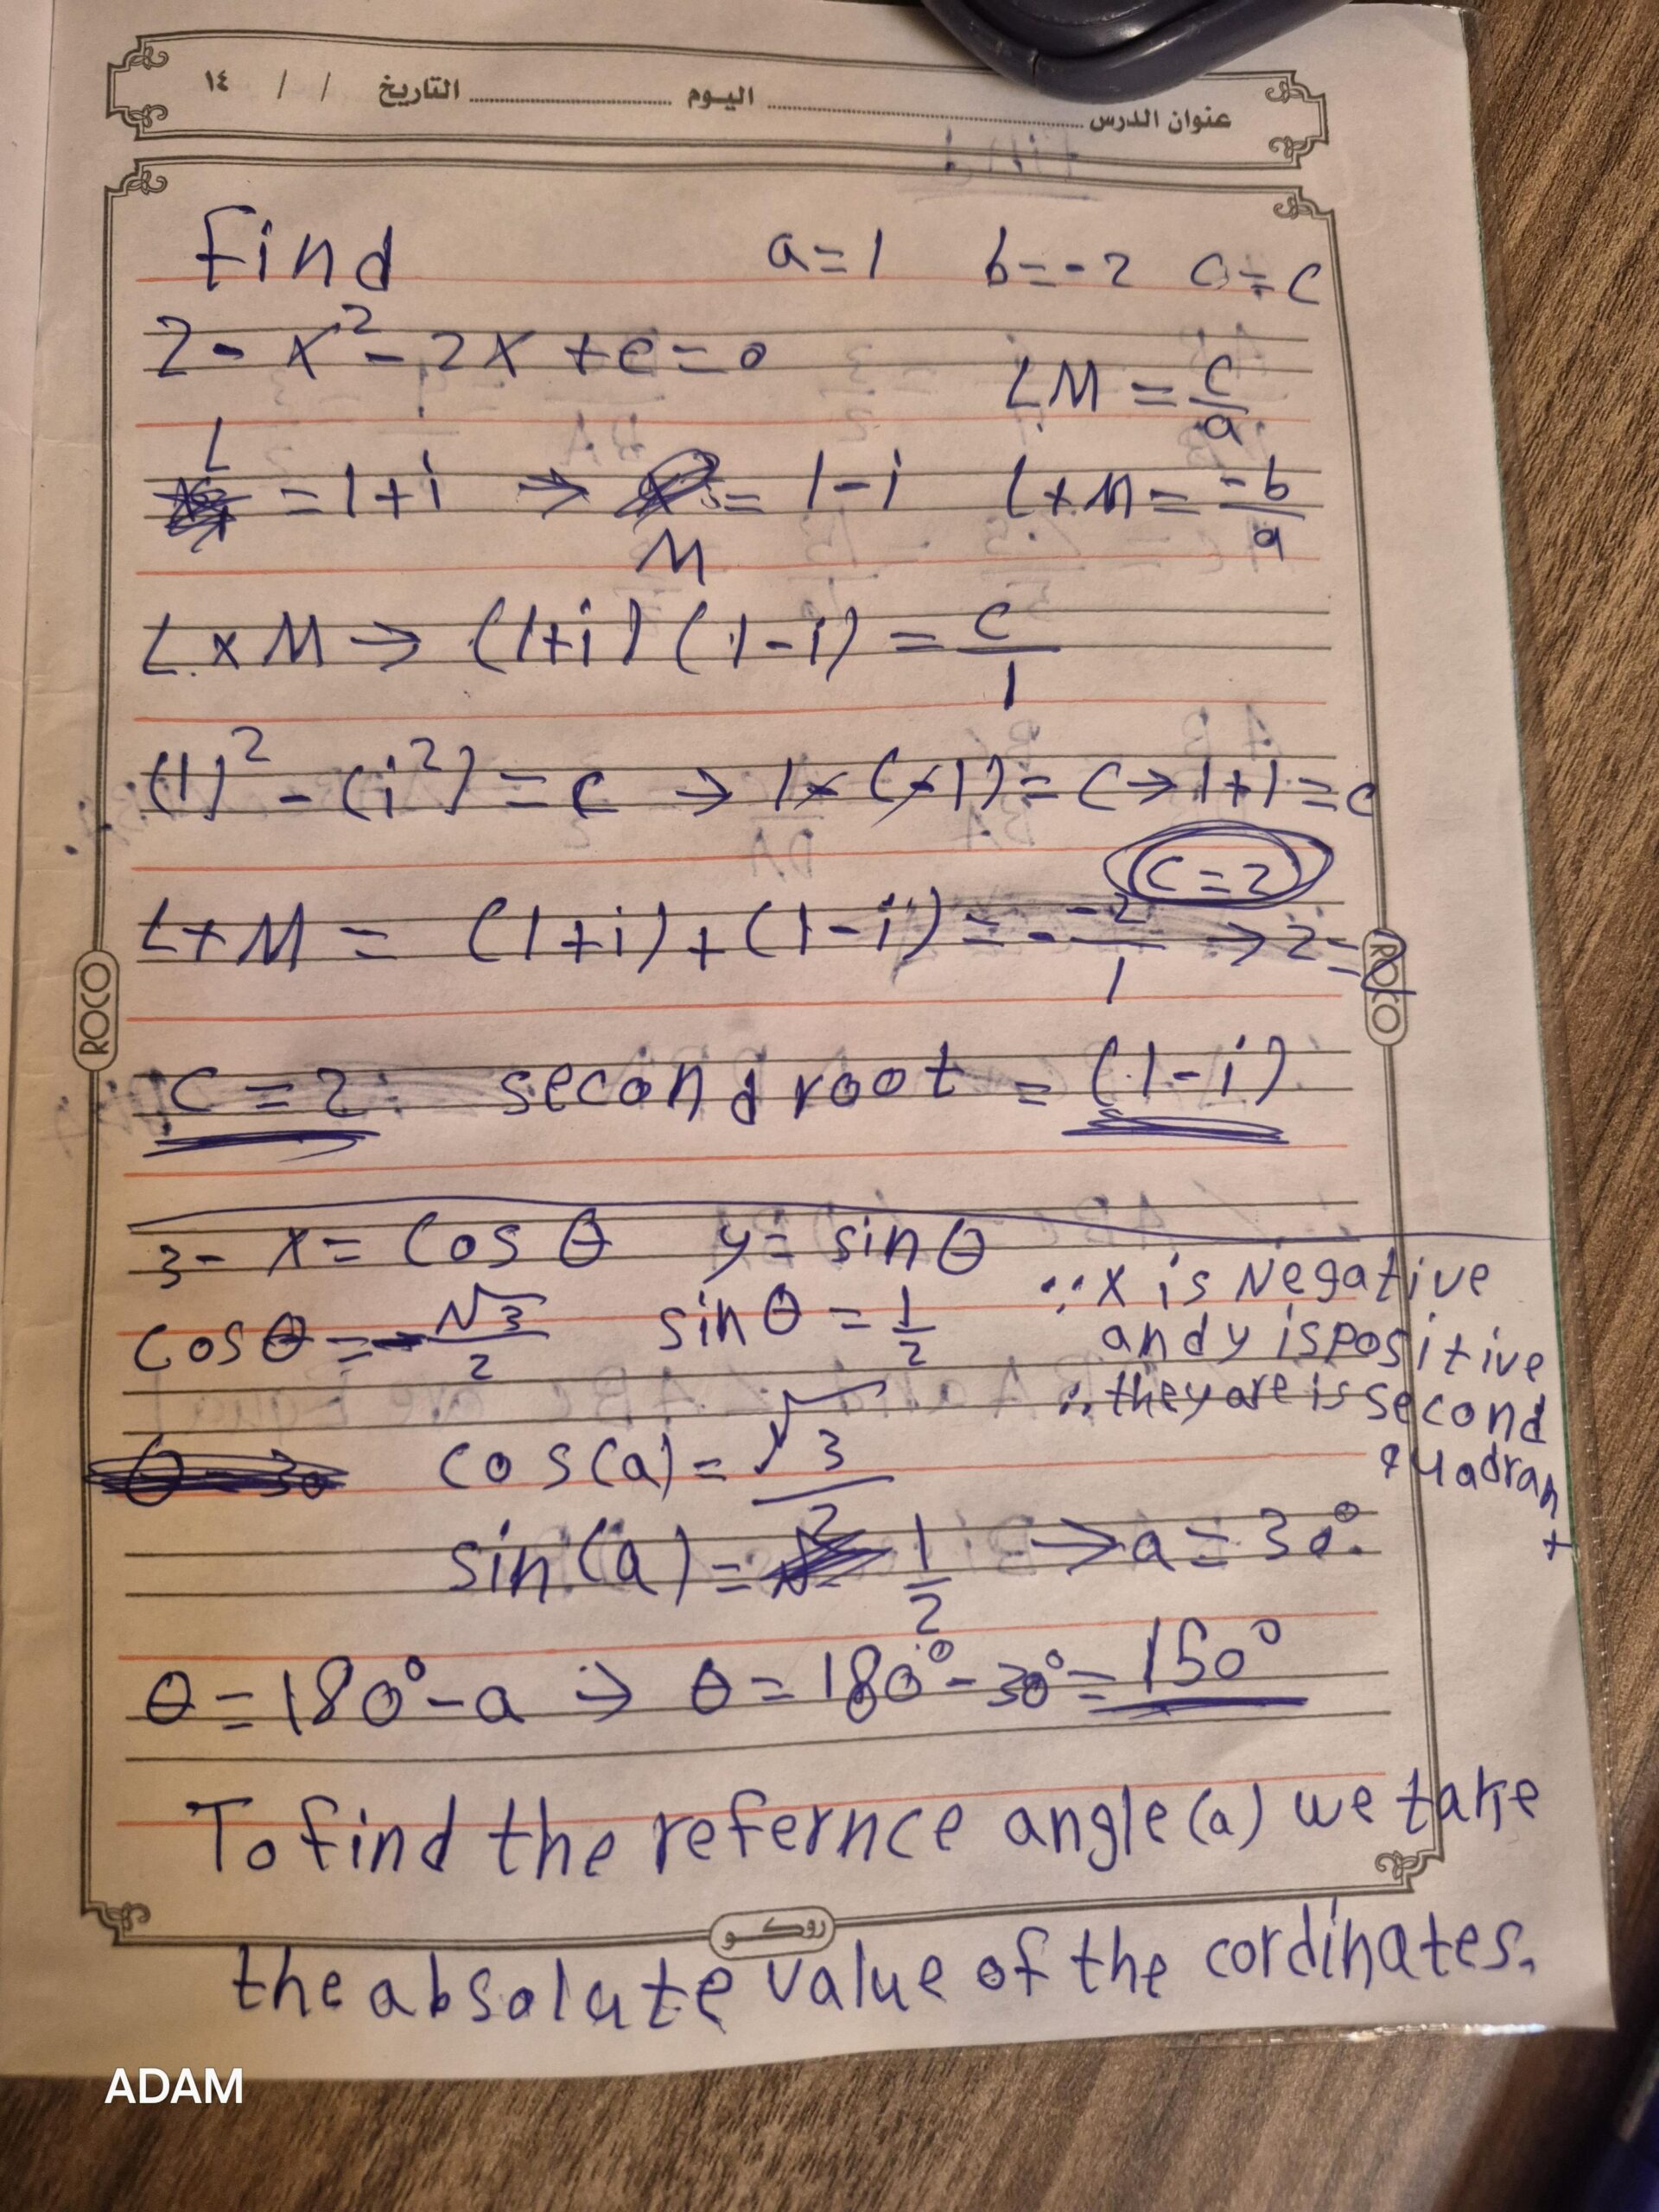 عنوان الدرس اليوم التاريخ / / ١٤
find a=1 b=-2 c=c
2- x²-2x+c=0
LM = c/a
L = 1+i → M = 1-i L+M = -b/a
L×M → (1+i)(1-i) = c/1
(1)² - (i²) = c → 1-(-1) = c → 1+1 = c
c=2
L+M = (1+i)+(1-i) = - -2/1 → 2=2
c=2 second root = (1-i)
3- x= cos θ y= sin θ
∵ x is Negative
and y is positive
∴ they are is second
quadrant
cos θ = -√3/2 sin θ = 1/2
θ = 30 cos(a) = √3/2
sin(a) = 1/2 → a = 30°
θ = 180° - a → θ = 180° - 30° = 150°
To find the refernce angle (a) we take
the absolute value of the cordinates.
ROCO
ROCO
روكو
ADAM